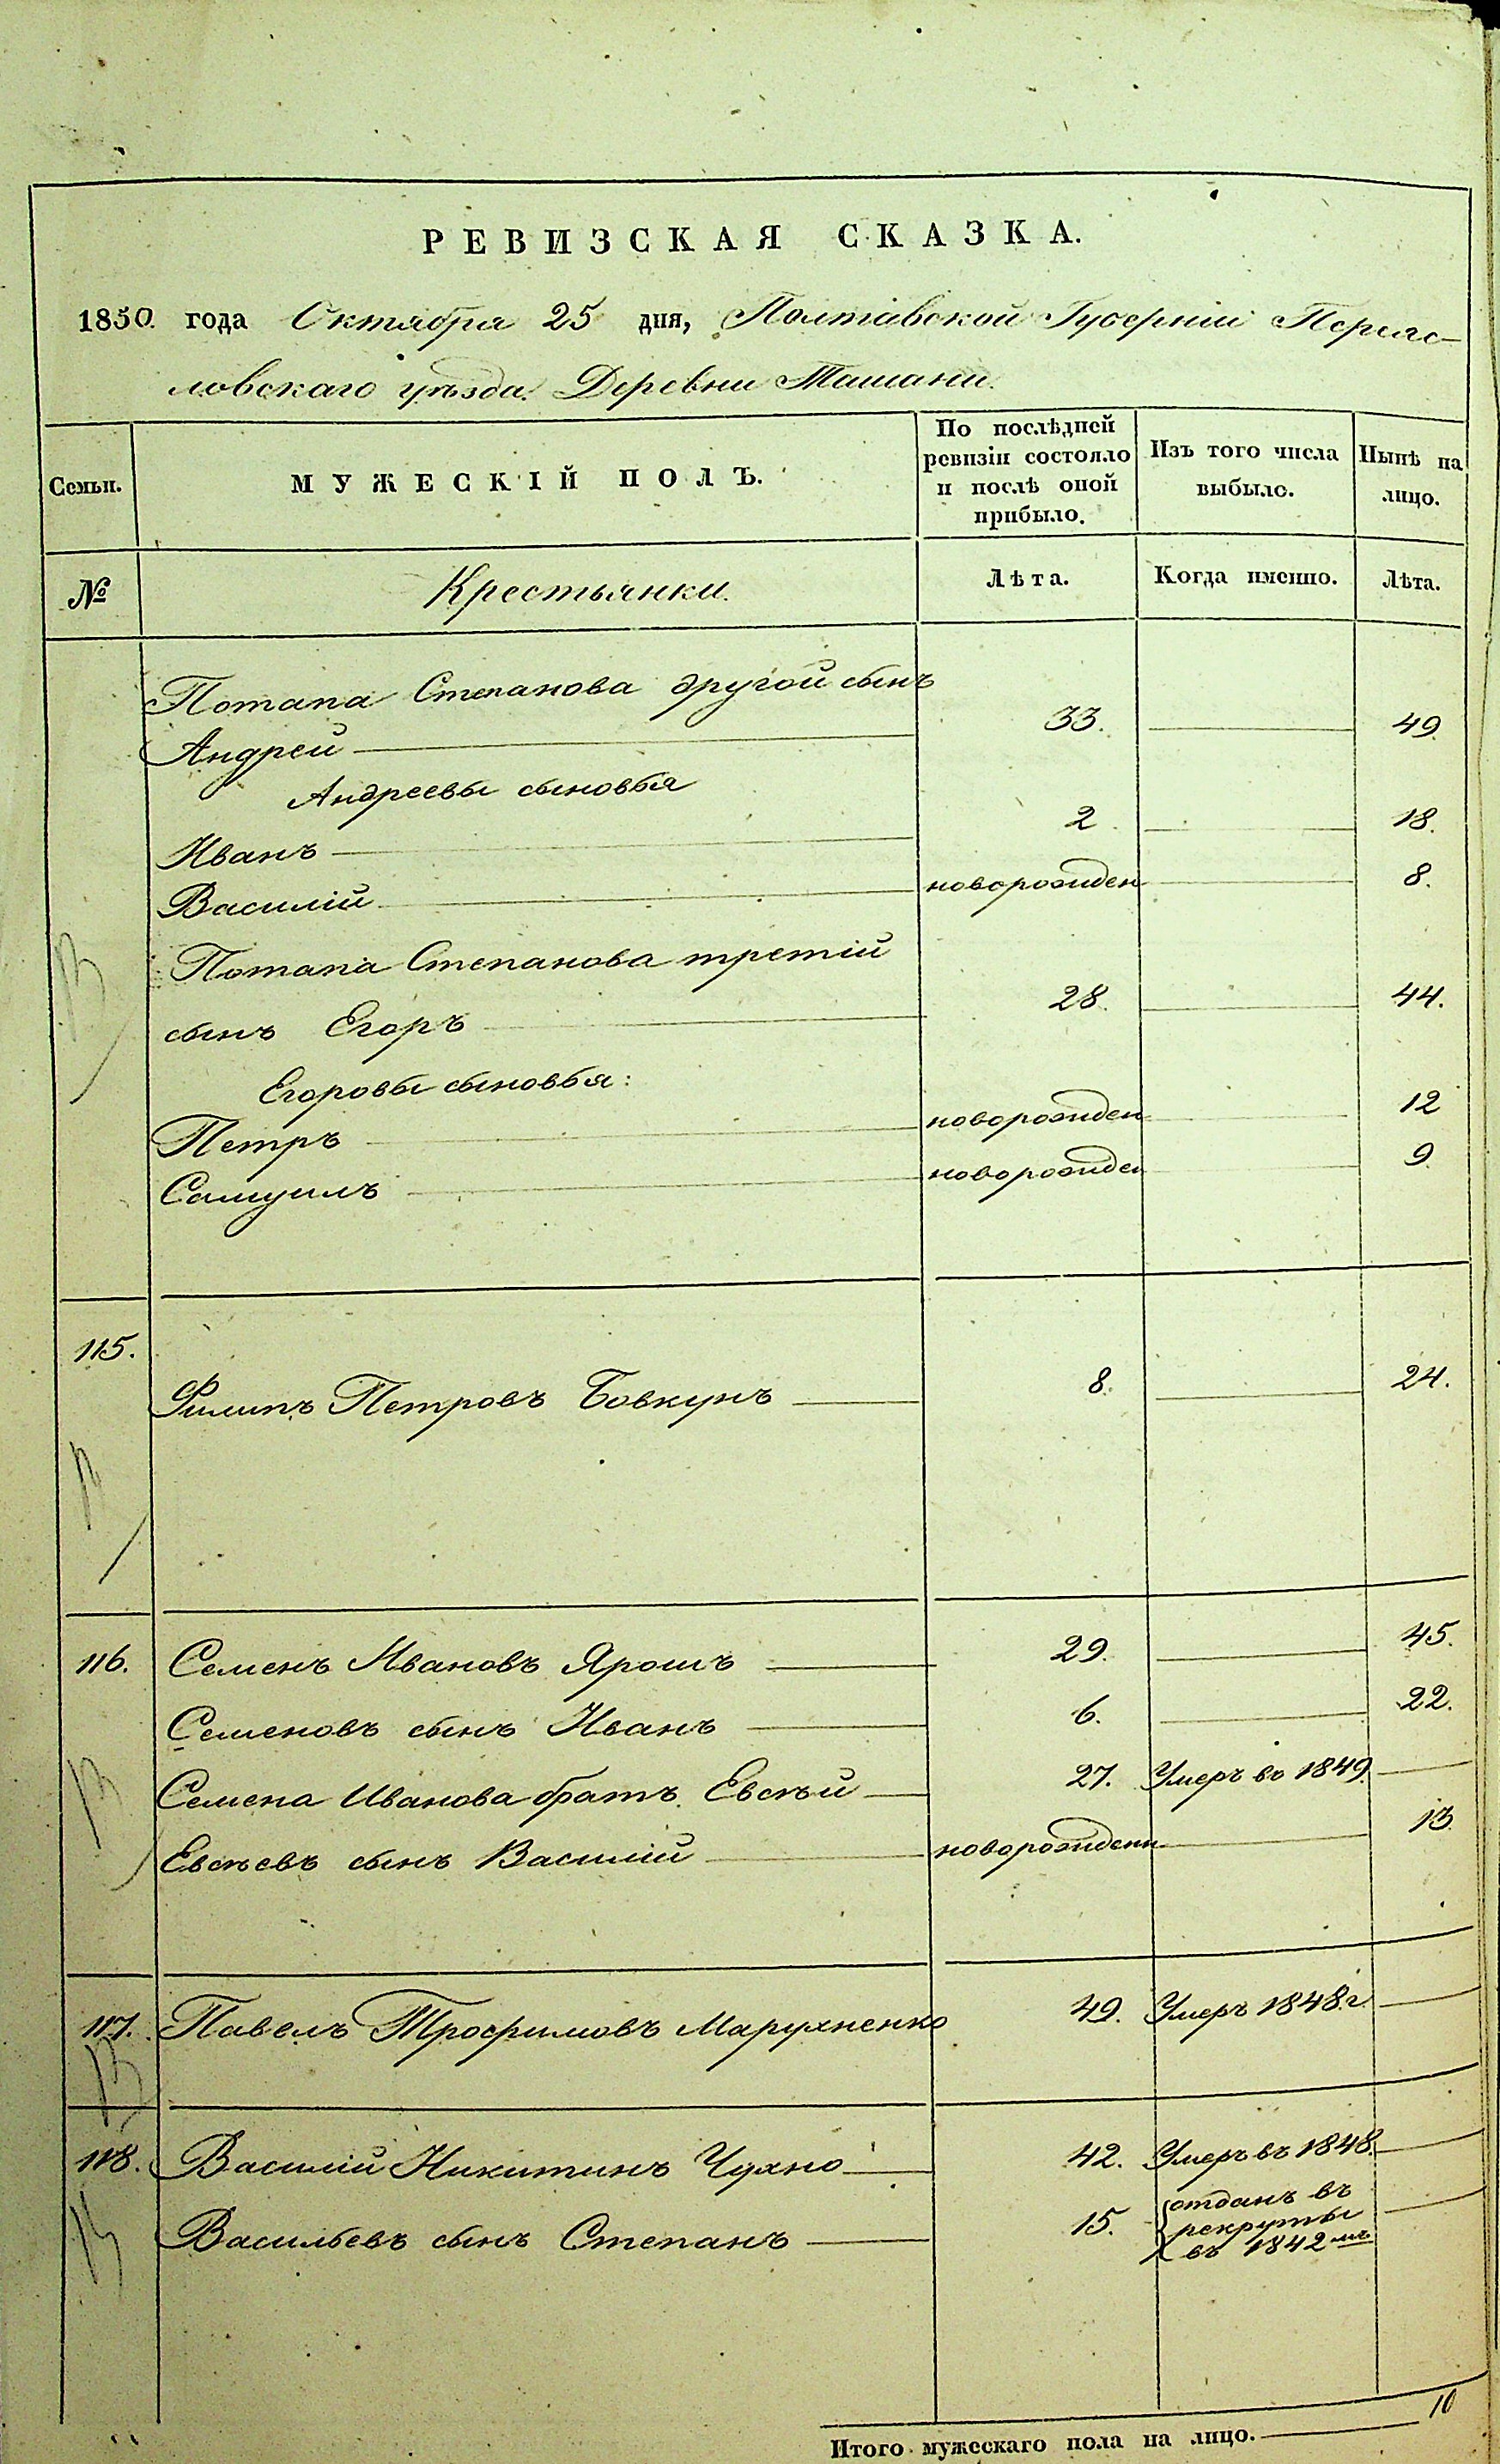 РЕВИЗСКАЯ СКАЗКА.
1850. года Октября 25 дня, Полтавской Губерніи Переяс-
ловскаго уѣзда. Деревни Ташани.
Семьи. МУЖЕСКІЙ ПОЛЪ. По послѣдней ревизіи состояло и послѣ оной прибыло. Изъ того числа выбыло. Нынѣ на лицо.
№ Крестьянки. Лѣта. Когда именно. Лѣта.
Потапа Степанова другой сынъ
Андрей 33. 49.
Андреевы сыновья
Иванъ 2. 18.
Василій новорожден 8.
Потапа Степанова третій
сынъ Егоръ 28. 44.
Егоровы сыновья:
Петръ новорожден 12
Самуилъ новорожден 9.
115.
Филипъ Петровъ Бовкунъ 8. 24.
116. Семенъ Ивановъ Ярошъ 29. 45.
Семеновъ сынъ Иванъ 6. 22.
Семена Иванова братъ Евсѣй 27. Умеръ въ 1849.
Евсѣевъ сынъ Василій новорожденн 13.
117. Павелъ Трофимовъ Марухненко 49. Умеръ 1848 г.
118. Василій Никитинъ Чухно 42. Умеръ въ 1848.
Васильевъ сынъ Степанъ 15. отданъ въ
рекруты
въ 1842 мъ
10
Итого мужескаго пола на лицо.